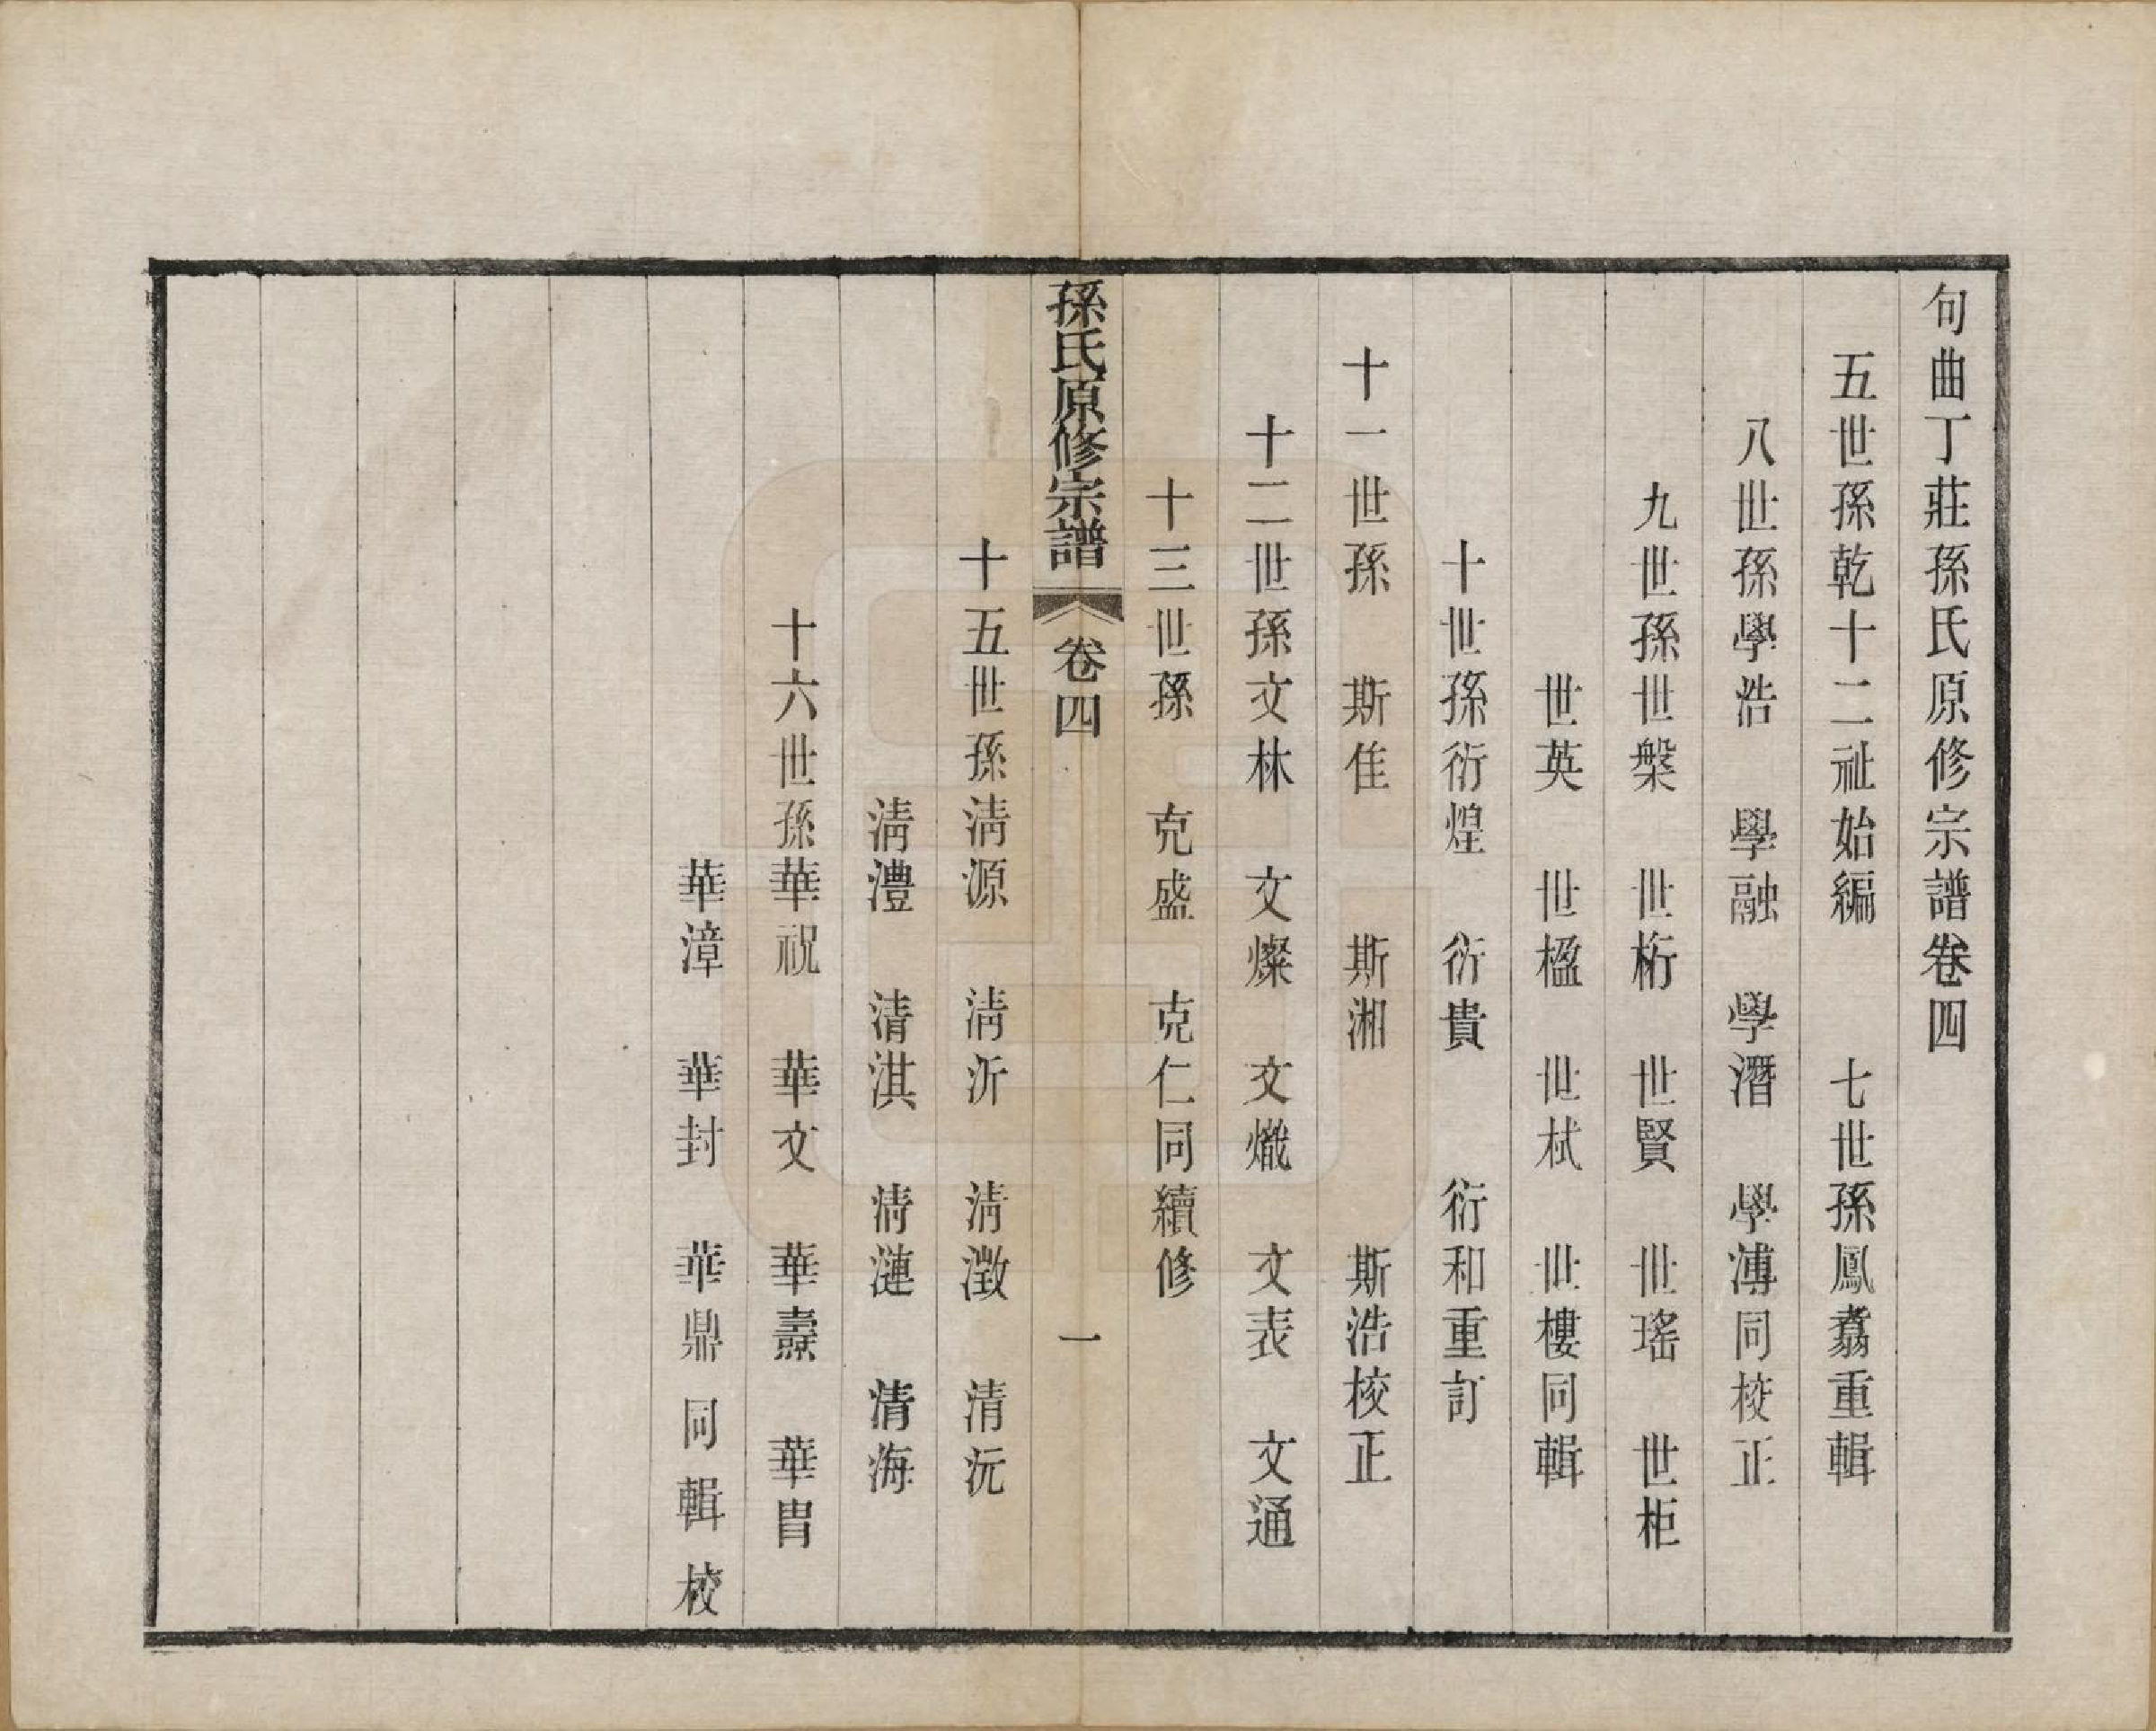 句曲丁莊孫氏原修宗譜卷四
五世孫乾十二祉始編　七世孫鳳翥重輯
八世孫學浩　學融　學潛　學溥同校正
九世孫世槃　世桁　世賢　世瑤　世柜
世英　世楹　世栻　世樓同輯
十世孫衍煌　衍貴　衍和重訂
十一世孫　斯佳　斯湘　斯浩校正
十二世孫文林　文燦　文熾　文表　文通
十三世孫　克盛　克仁同續修
孫氏原修宗譜　卷四　一
十五世孫淸源　淸沂　淸澂　清沅
淸澧　清淇　淸漣　清海
十六世孫華祝　華文　華燾　華胄
華漳　華封　華鼎同輯校